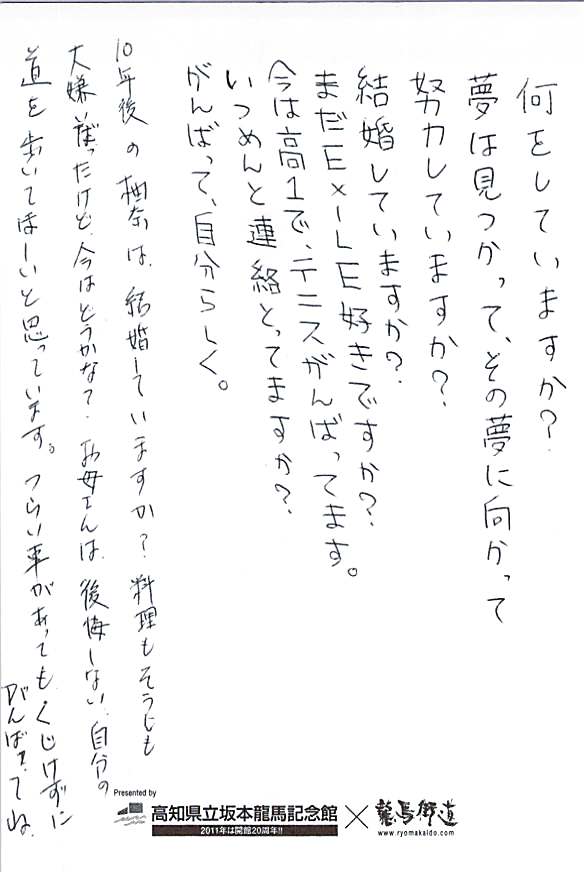 何をしていますか?
夢は見つかって、その夢に向かって
努力していますか?
結婚していますか?
まだEXILE好きですか?
今は高1で、テニスがんばってます。
いつめんと連絡とってますか?
がんばって、自分らしく。
10年後の柚奈は、結婚していますか? 料理もそうじも
大嫌いだったけど、今はどうかなて? お母さんは、後悔しない、自分の
道を歩いてほーいと思っています。つらい事があっても、くじけずに
がんばってね。
Presented by
高知県立坂本龍馬記念館 × 龍馬街道
2011年は開館20周年!!
www.ryomakaido.com